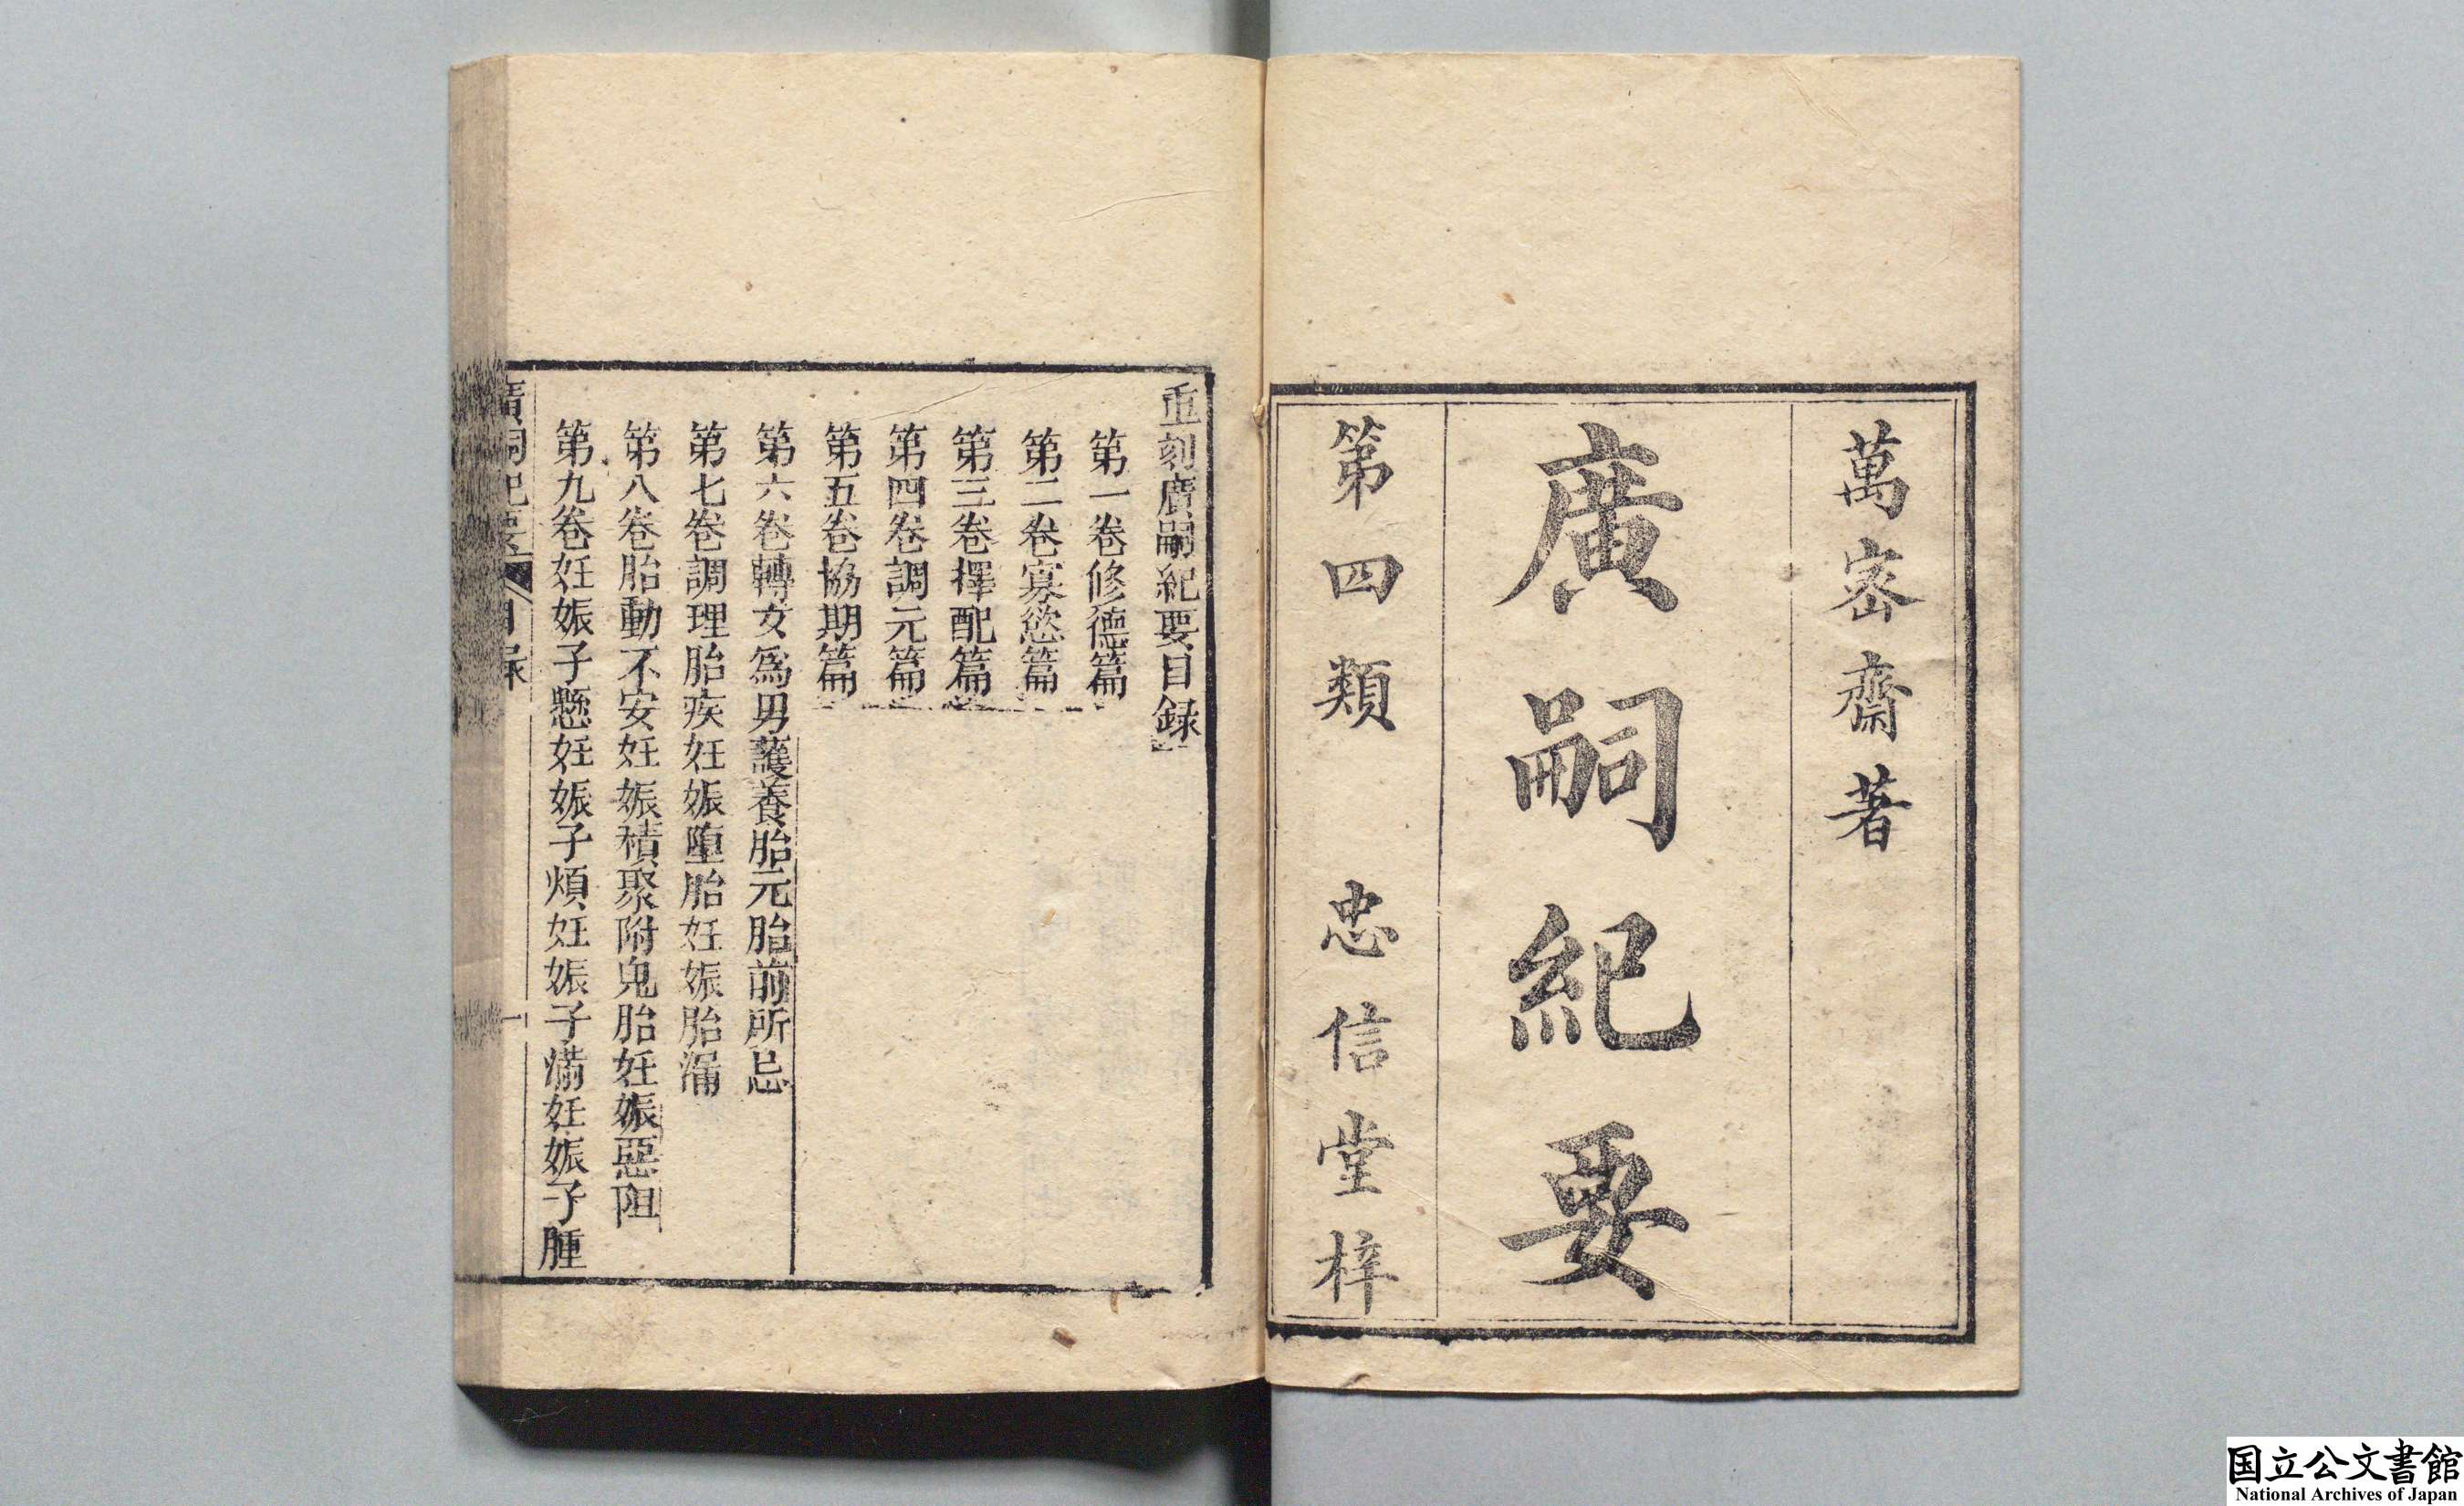 萬密齋著
廣嗣紀要
第四類 忠信堂梓
重刻廣嗣紀要目録
第一卷修德篇
第二卷寡慾篇
第三卷擇配篇
第四卷調元篇
第五卷協期篇
第六卷轉女為男護養胎元胎前所忌
第七卷調理胎疾妊娠墮胎妊娠胎漏
第八卷胎動不安妊娠積聚附鬼胎妊娠惡阻
第九卷妊娠子懸妊娠子煩妊娠子滿妊娠子腫
廣嗣紀要 目录 一
国立公文書館
National Archives of Japan